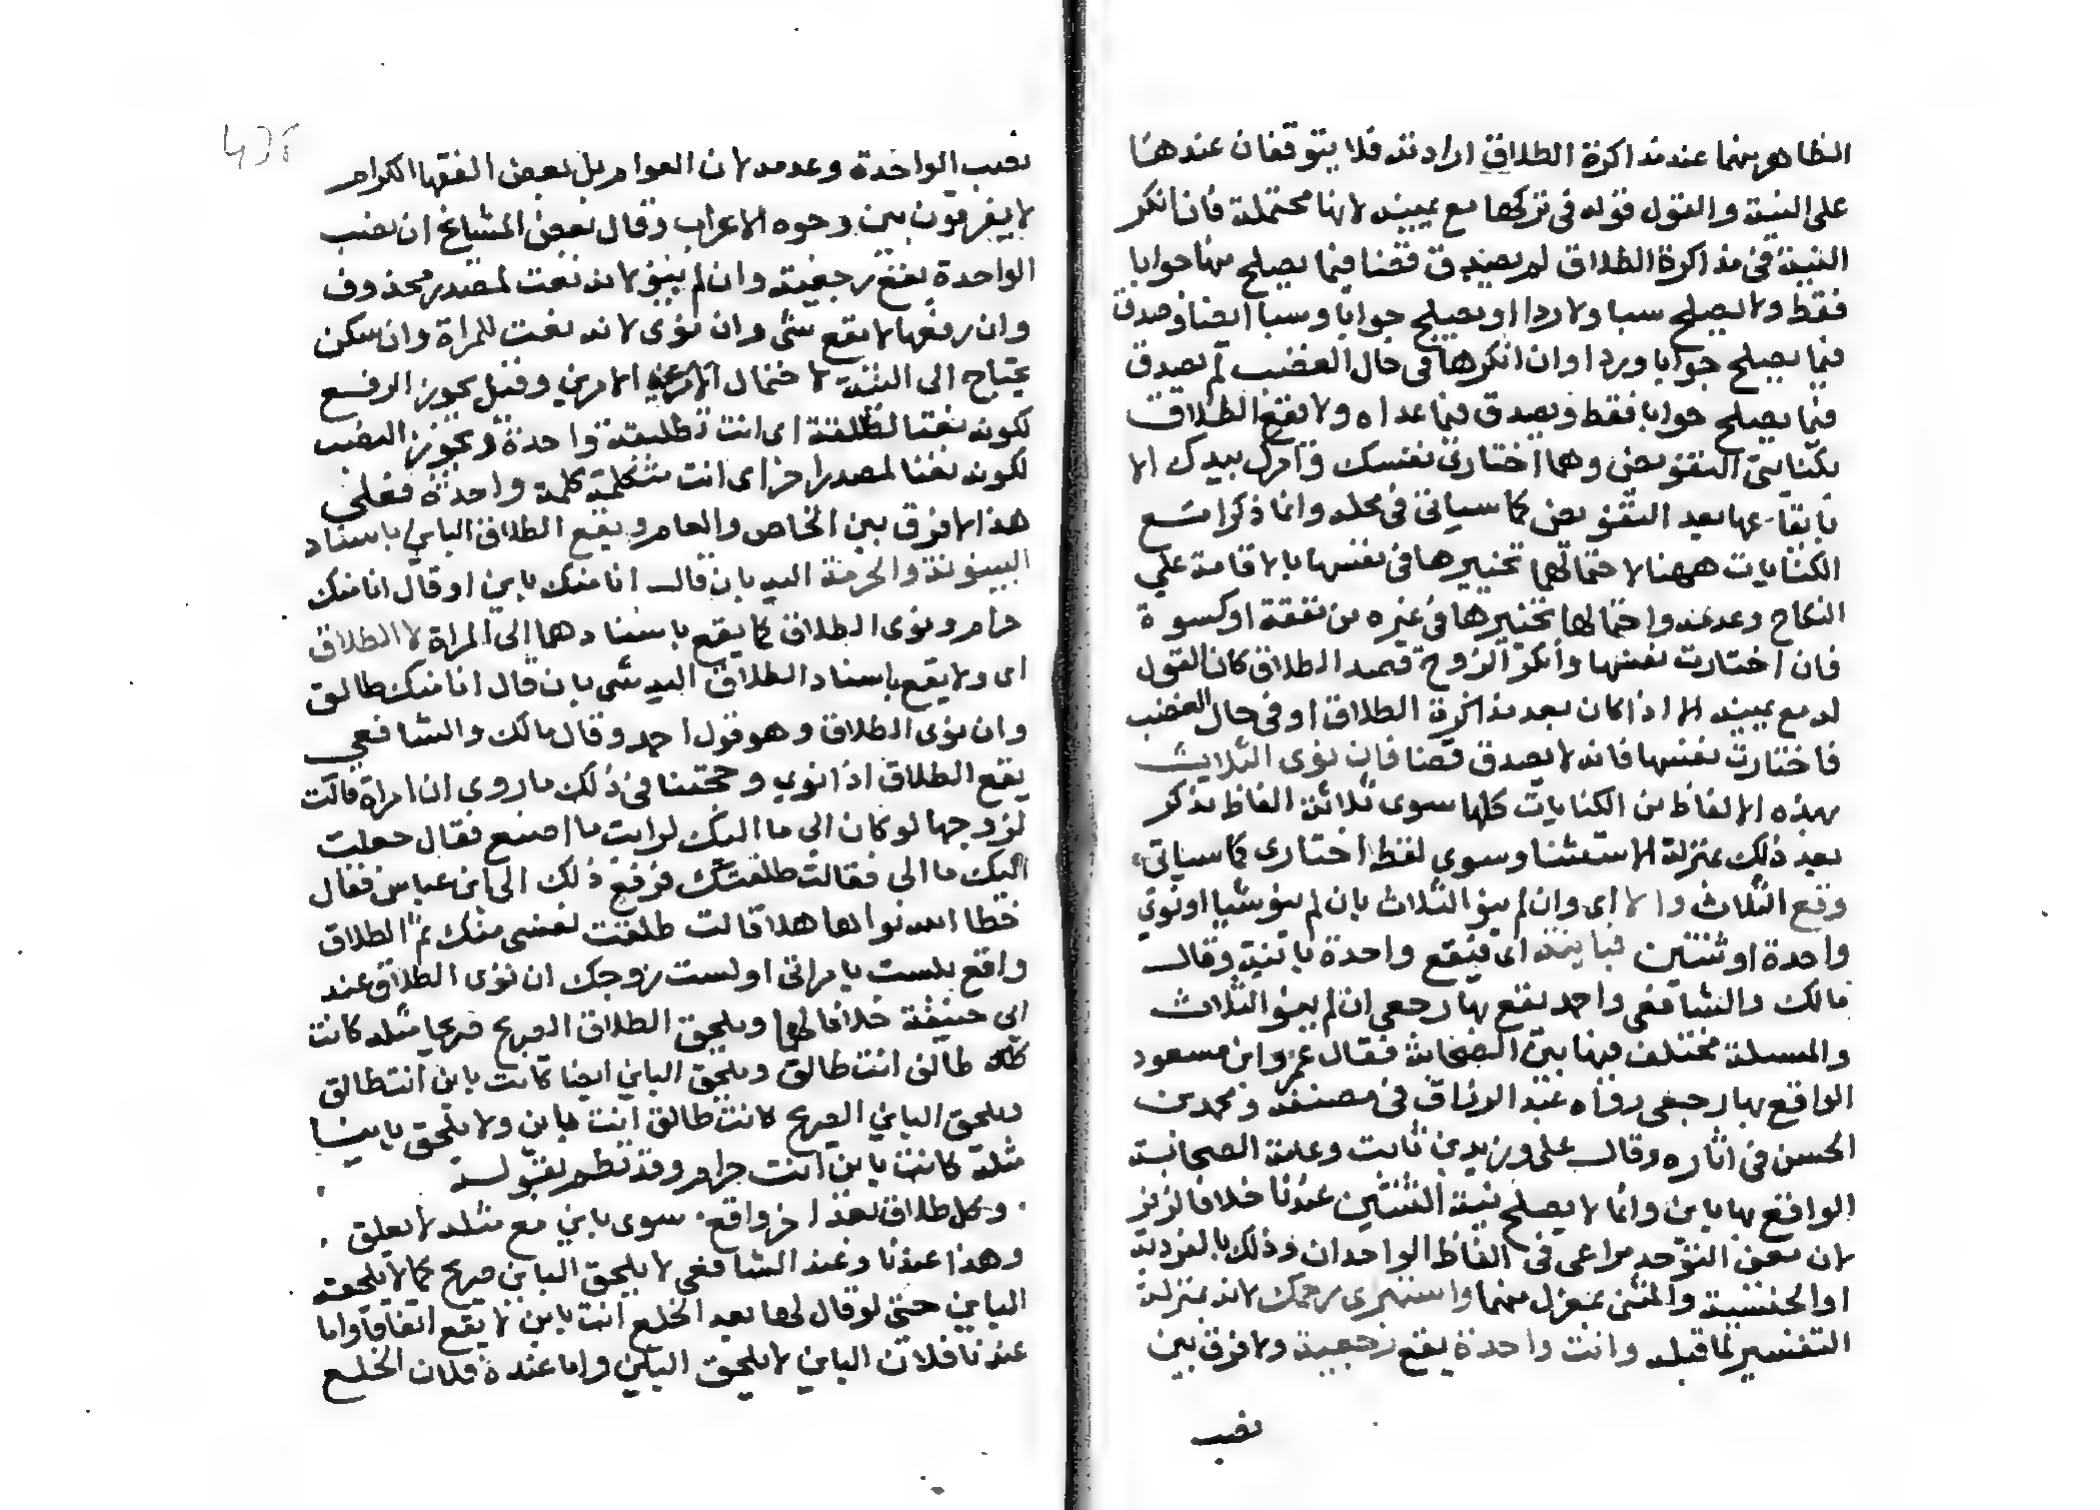 الظاهر بهما عند مذاكرة الطلاق ارادته فلا يتوقفان عندهنا
على النية والقول قوله في تركها مع يمينه لانها محتملة فان انكر
النية في مذاكرة الطلاق لم يصدق قضا فيما يصلح منها جوابا
فقط ولا يصلح سبا ولا ردا او يصلح جوابا وسبا ايضا وصدق
فيما يصلح جوابا وردا وان انكرها في حال الغضب لم يصدق
فيما يصلح جوابا فقط وصدق فيما عداه ولا يقع الطلاق
بكنايتي التفويض وهما اختاري نفسك وامرك بيدك الا
بايقاعها بعد التفويض كما سياتي في محله وانما ذكرا مع
الكنايات ههنا لاحتمالهما تخييرها في نفسها بالاقامة علي
النكاح وعدمه واحتمالها تخييرها في غيره من نفقة او كسوة
فان اختارت نفسها وانكر الزوج قصد الطلاق كان القول
له مع يمينه الا اذا كان بعد مذاكرة الطلاق او في حال الغضب
فاختارت نفسها فانه لا يصدق قضا فان نوى الثلاث
بهذه الالفاظ من الكنايات كلها سوى ثلاثة الفاظ تذكر
بعد ذلك بمنزلة الاستثنا وسوي لفظ اختاري كما سياتي
وقع الثلاث والا اى وان لم ينو الثلاث بان لم ينو شيا او نوى
واحدة او ثنتين فباينة اى فيقع واحدة باينة وقال
مالك والشافعي واحد يقع بها رجعي ان لم ينو الثلاث
والمسلة مختلف فيها بين الصحابة فقال عمر وابن مسعود
الواقع بها رجعي رواه عبد الرزاق في مصنفه ومحمد بن
الحسن في اثاره وقال علي وزيد بن ثابت وعامة الصحابة
الواقع بها باين وانما لا يصلح نية الثنتين عندنا خلافا لزفر
لان معنى التوحد مراعى في الفاظ الواحدان وذلك بالفردية
او الجنسية والمثنى بمعزل منهما واستبرى رحمك لانه بمنزلة
التفسير لما قبله وانت واحدة يقع رجعية ولا فرق بين
نصب
نصب الواحدة وعدمه لان العوام بل بعض الفقها الكرام
لا يفرقون بين وجوه الاعراب وقال بعض المشايخ ان نصب
الواحدة يقع رجعية وان لم ينو لانه نعت لمصدر محذوف
وان رفعها لا يقع شئ وان نوى لانه نعت للمراة وان سكن
يحتاج الى النية لاحتمال الامرين وقيل يجوز الرفع
لكونه نعتا لطلقة اى انت تطليقة واحدة ويجوز النصب
لكونه نعتا لمصدر اخر اى انت متكلمة كلمة واحدة فعلى
هذا لا فرق بين الخاص والعام ويقع الطلاق الباين باسناد
البينونة والحرمة اليه بان قال انا منك باين او قال انا منك
حرام ونوى الطلاق كما يقع باسنادهما الى المراة لا الطلاق
اى ولا يقع باسناد الطلاق اليه شى بان قال انا منك طالق
وان نوى الطلاق وهو قول احمد وقال مالك والشافعي
يقع الطلاق اذا نوى وحجتنا في ذلك ما روى ان امراة قالت
لزوجها لو كان الى ما اليك لرايت ما اصنع فقال جعلت
اليك ما الى فقالت طلقتك فرفع ذلك الى ابن عباس فقال
خطا الله نواها هلا قالت طلقت نفسى منك ثم الطلاق
واقع بلست بامراتي او لست زوجك ان نوى الطلاق عند
ابى حنيفة خلافا لهما ويلحق الطلاق الصريح صريحا مثله كانت
طالق انت طالق ويلحق الباين ايضا كانت باين انت طالق
ويلحق الباين الصريح كانت طالق انت باين ولا يلحق باينا
مثله كانت باين انت حرام وقد نظم بقوله
وكل طلاق بعد اخر واقع سوى باين مع مثله لا تعلق
وهذا عندنا وعند الشافعي لا يلحق الباين صريح كما لا يلحقه
الباين حتى لو قال لها بعد الخلع انت باين لا يقع اتفاقا واما
عندنا فلان الباين لا يلحق الباين واما عنده فلان الخلع